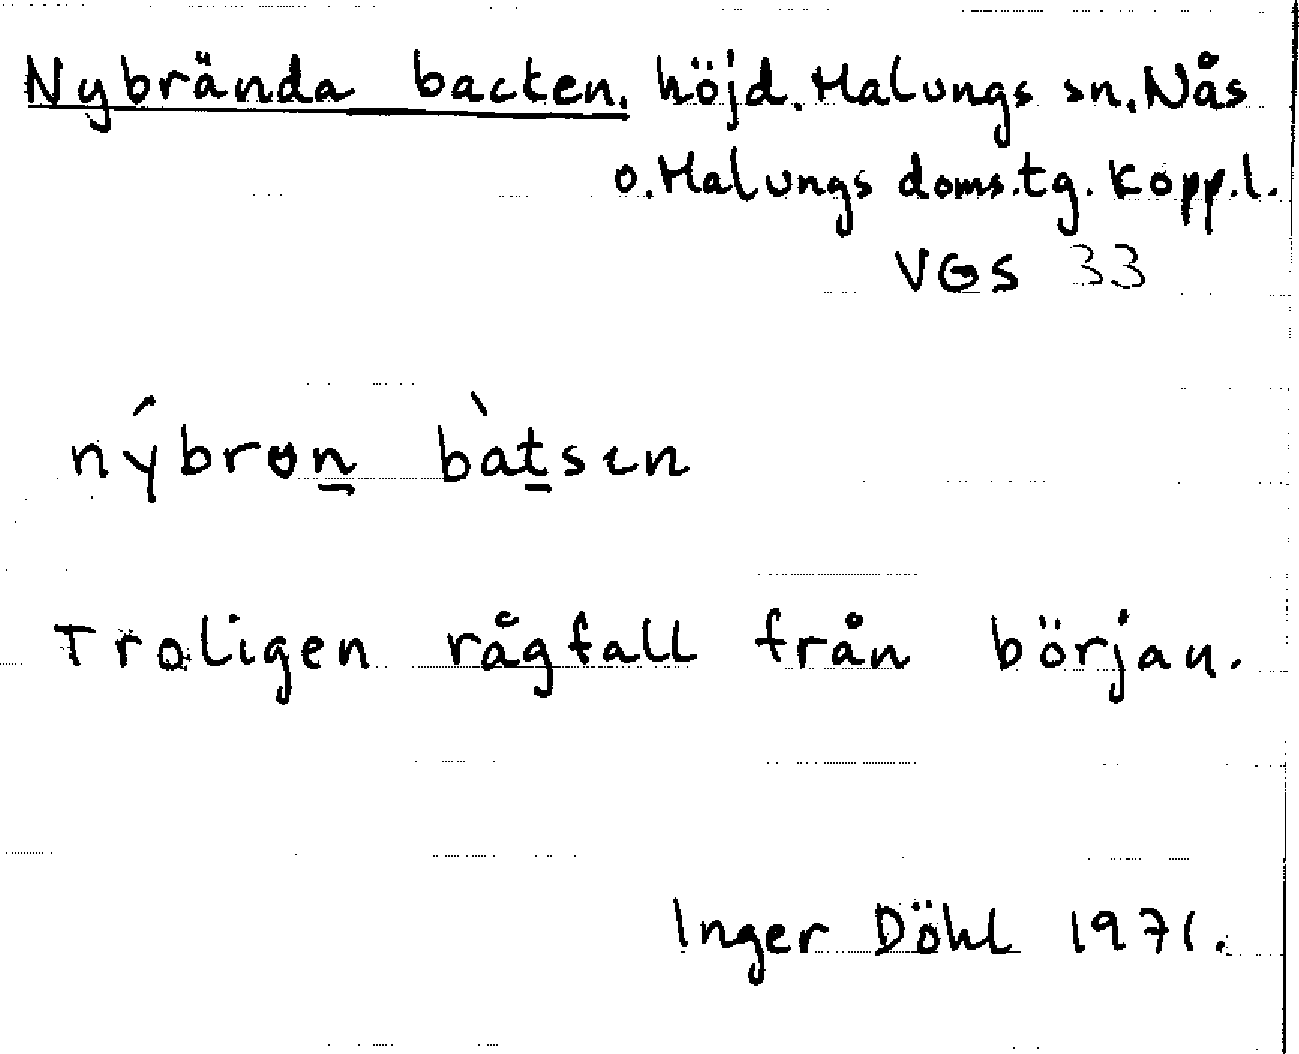 Nybrända backen. höjd. Malungs sn. Nås
o. Malungs doms.tg. Kopp.l.
VGS 33
nýbrɷn̲ bàt̲sɩn
Troligen rågfall från början.
Inger Döhl 1971.